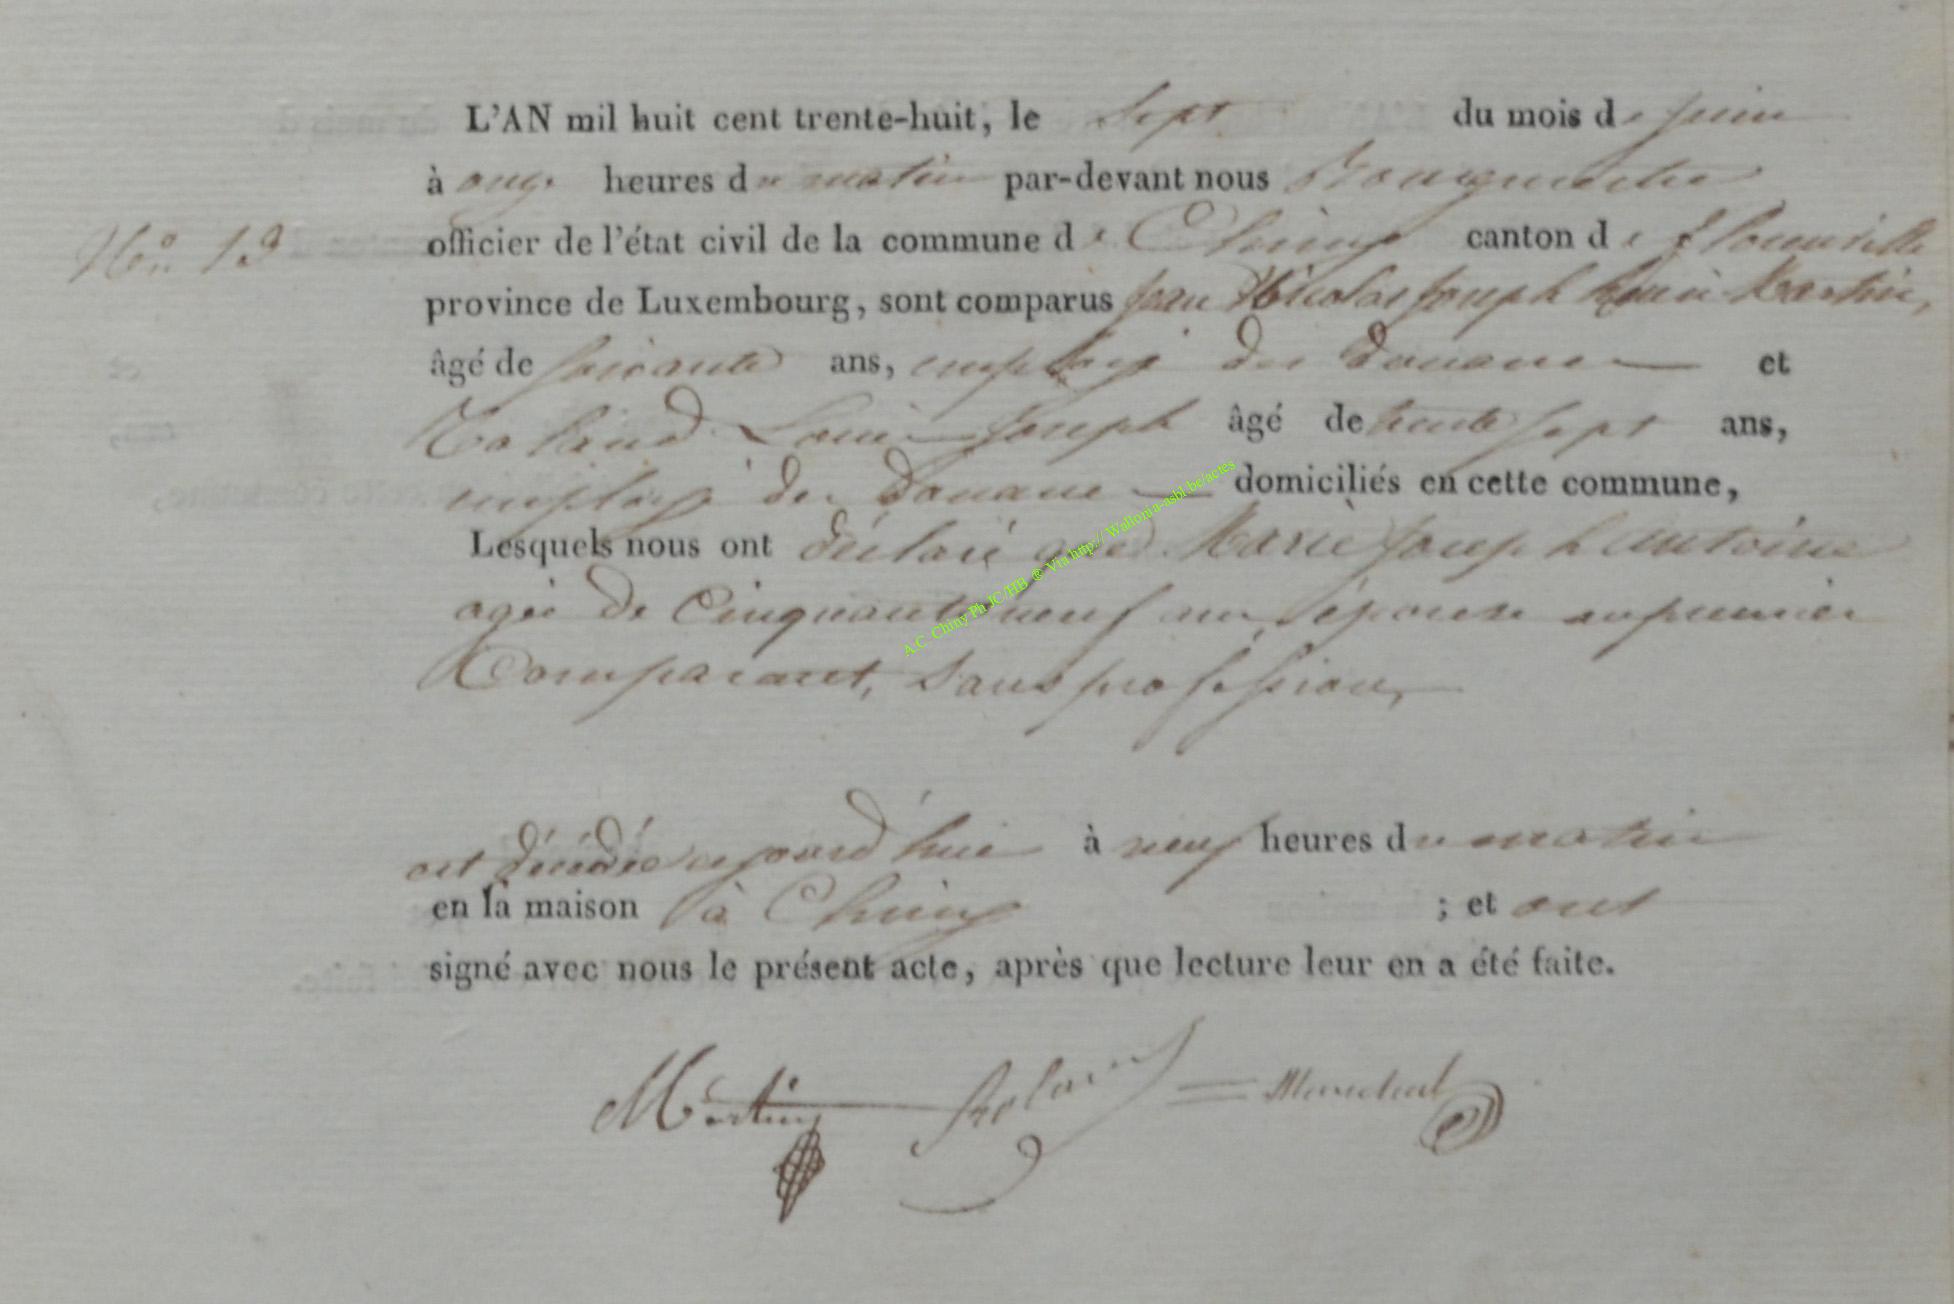 L'AN mil huit cent trente-huit, le sept du mois de juin
à onze heures du matin par-devant nous Bourgmestre
No. 13 officier de l'état civil de la commune de Chiny canton de florenville
province de Luxembourg, sont comparus Jean Nicolas Joseph henri Martin,
âgé de soixante ans, employé des Douanes et
Roland Louis Joseph âgé de trente sept ans,
employé des Douane domiciliés en cette commune,
Lesquels nous ont déclaré que Marie Joseph Antoine
agée de Cinquante neuf ans, épouse au premier
Comparant, sans profession,
est décédée cejourd'hui à neuf heures du matin
en la maison à Chiny ; et ont
signé avec nous le présent acte, après que lecture leur en a été faite.
Martin Roland Maréchal
A.C. Chiny Ph JC/HB ® Via http:// Wallonia-asbl.be/actes